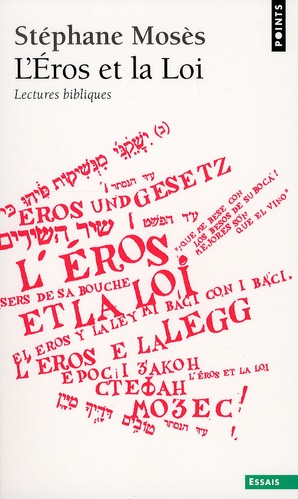 Stéphane Mosès
POINTS
L'Éros et la Loi
Lectures bibliques
(ב) יִשָּׁקֵנִי מִנְּשִׁיקוֹת פִּיהוּ כִּי
עד הנסתר
EROS UND GESETZ
עד הפשט
שיר השירים
"¡QUE ME BESE CON
LOS BESOS DE SU BOCA!
MEJORES SON
QUE EL VINO"
L'ÉROS
SERS DE SA BOUCHE
ET LA LOI
EL EROS Y LA LEY
MI BACI CON I BACI.
L'EROS E LA LEGG
ЕРОС И ЗАКОН
СТЕФАН
L'ÉROS ET LA LOI
МОЗЕС!
טוֹבִים דֹּדֶיךָ מִיָּיִן
עד הנסתר
ESSAIS